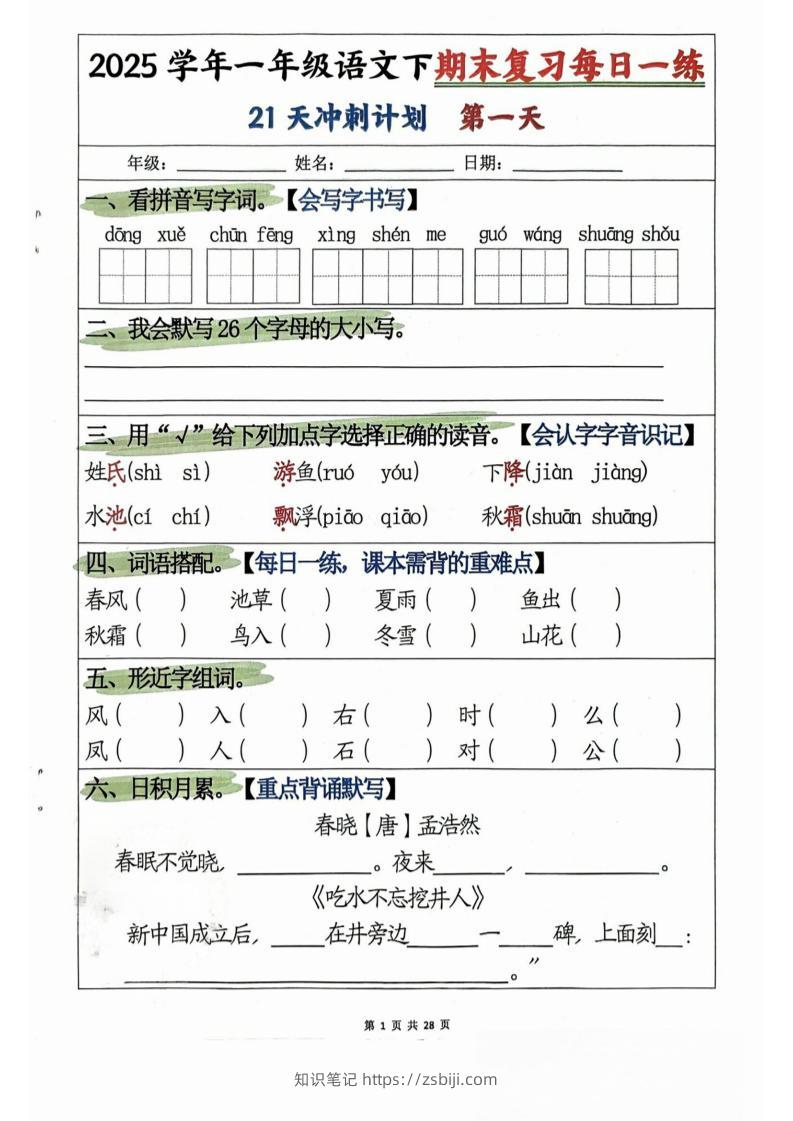 2025 学年一年级语文下期末复习每日一练
21 天冲刺计划 第一天
年级：__________ 姓名：__________ 日期：__________
一、看拼音写字词。【会写字书写】
dōng xuě chūn fēng xìng shén me guó wáng shuāng shǒu
二、我会默写 26 个字母的大小写。
三、用“√”给下列加点字选择正确的读音。【会认字字音识记】
姓氏(shì sì) 游鱼(ruó yóu) 下降(jiàn jiàng)
水池(cí chí) 飘浮(piāo qiāo) 秋霜(shuān shuāng)
四、词语搭配。【每日一练，课本需背的重难点】
春风（ ） 池草（ ） 夏雨（ ） 鱼出（ ）
秋霜（ ） 鸟入（ ） 冬雪（ ） 山花（ ）
五、形近字组词。
风（ ） 入（ ） 右（ ） 时（ ） 么（ ）
凤（ ） 人（ ） 石（ ） 对（ ） 公（ ）
六、日积月累。【重点背诵默写】
春晓【唐】孟浩然
春眠不觉晓，__________。夜来______，__________。
《吃水不忘挖井人》
新中国成立后，____在井旁边______一____碑，上面刻__：
____________________________。”
第 1 页 共 28 页
知识笔记 https://zsbiji.com